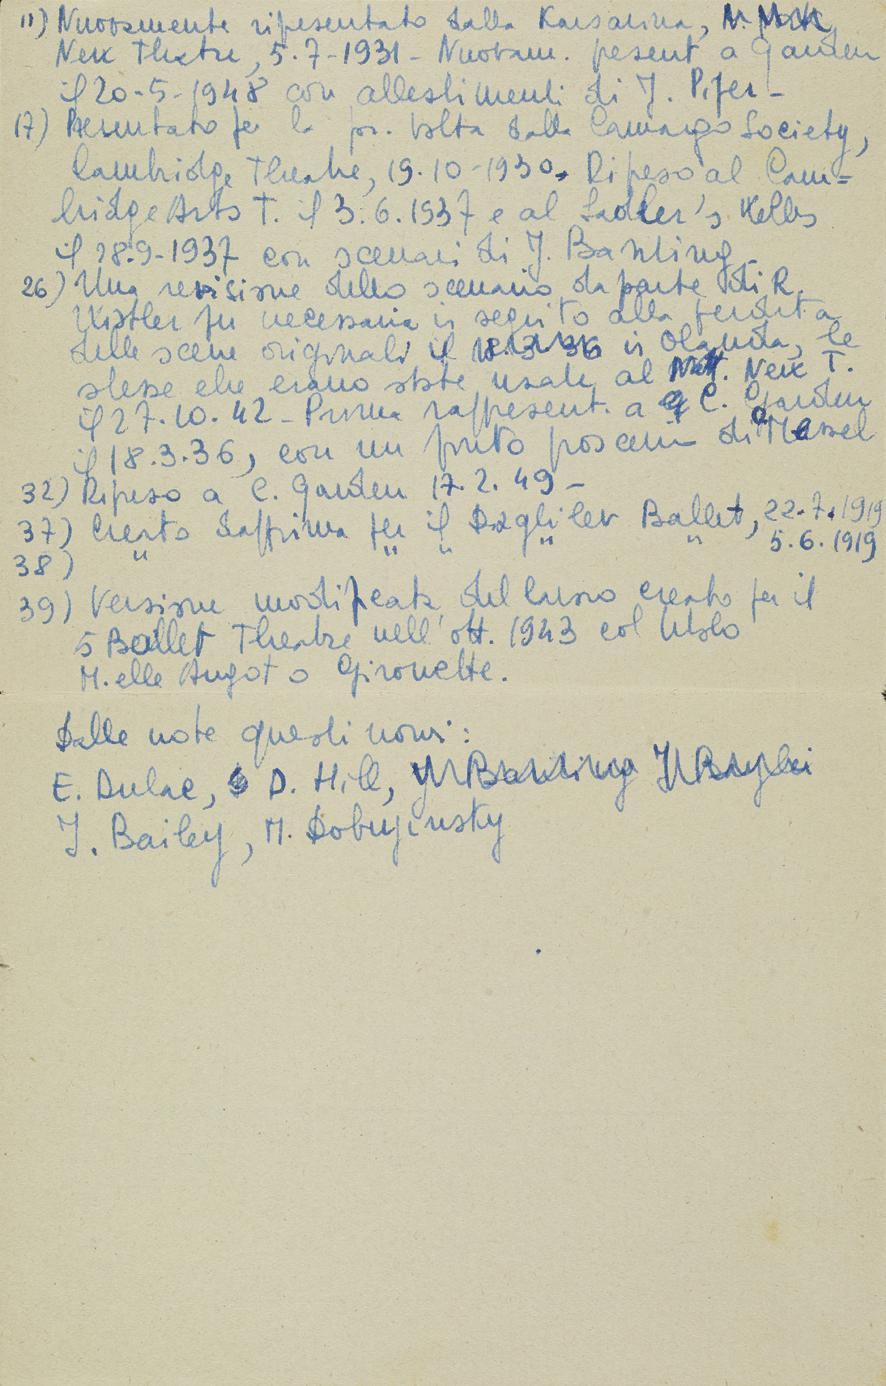 11) Nuovamente ripresentato dalla Karsavina,
New Theatre, 5.7-1931- Nuovam. present a Garden
il 20-5-1948 con allestimenti di J. Piper-
17) Presentato per la pr. volta dalla Camargo Society,
Cambridge Theatre, 19.10-1930. Ripreso al Cam=
bridge Arts T. il 3.6.1937 e al Sadler's Wells
il 28.9-1937 con scenari di J. Banting-
26) Una revisione dello scenario da parte di R.
Whistler fu necessaria in seguito alla perdita
delle scene originali il in Olanda, le
stesse che erano state usate al New T.
il 27.10.42- Prima rappresent. a C. Garden
il 18.3.36, con un di Massel
32) Ripreso a C. Garden 17.2.49-
37) Creato dapprima per il Diaghilev Ballet, 22.7.1919
38) " " " " " 5.6.1919
39) Versione modificata del lavoro creato per il
5 Ballet Theatre nell'ott. 1943 col titolo
M.elle Angot o Girouette.
Dalle note questi nomi:
E. Dulac, D. Hill,
J. Bailey, M. Dobujinsky